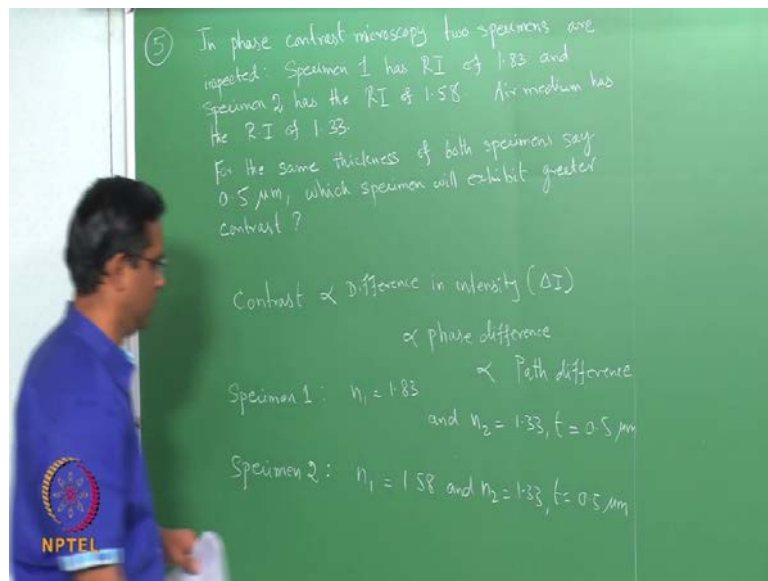 5 In phase contrast microscopy two specimens are
inspected: Specimen 1 has RI of 1.83 and
Specimen 2 has the RI of 1.58. Air medium has
the R.I of 1.33.
For the same thickness of both specimens say
0.5 μm, which specimen will exhibit greater
contrast ?
Contrast ∝ Difference in intensity (ΔI)
∝ phase difference
∝ Path difference
Specimen 1 : n₁ = 1.83
and n₂ = 1.33, t = 0.5 μm
Specimen 2 : n₁ = 1.58 and n₂ = 1.33, t = 0.5 μm
NPTEL